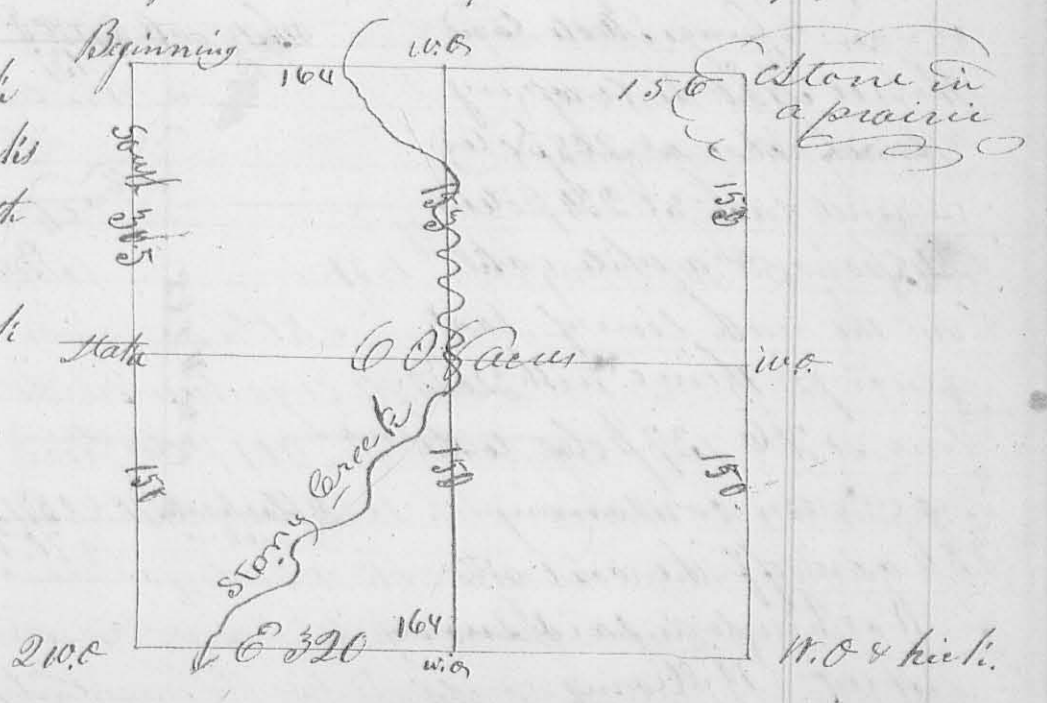 Beginning
w.o
164
156
Stone in
a prairie
South 305
158
158
State
600 Acres
w.o.
158
150
150
Stony Creek
2 w.o
E 320
164
w.o
W.O & hick.